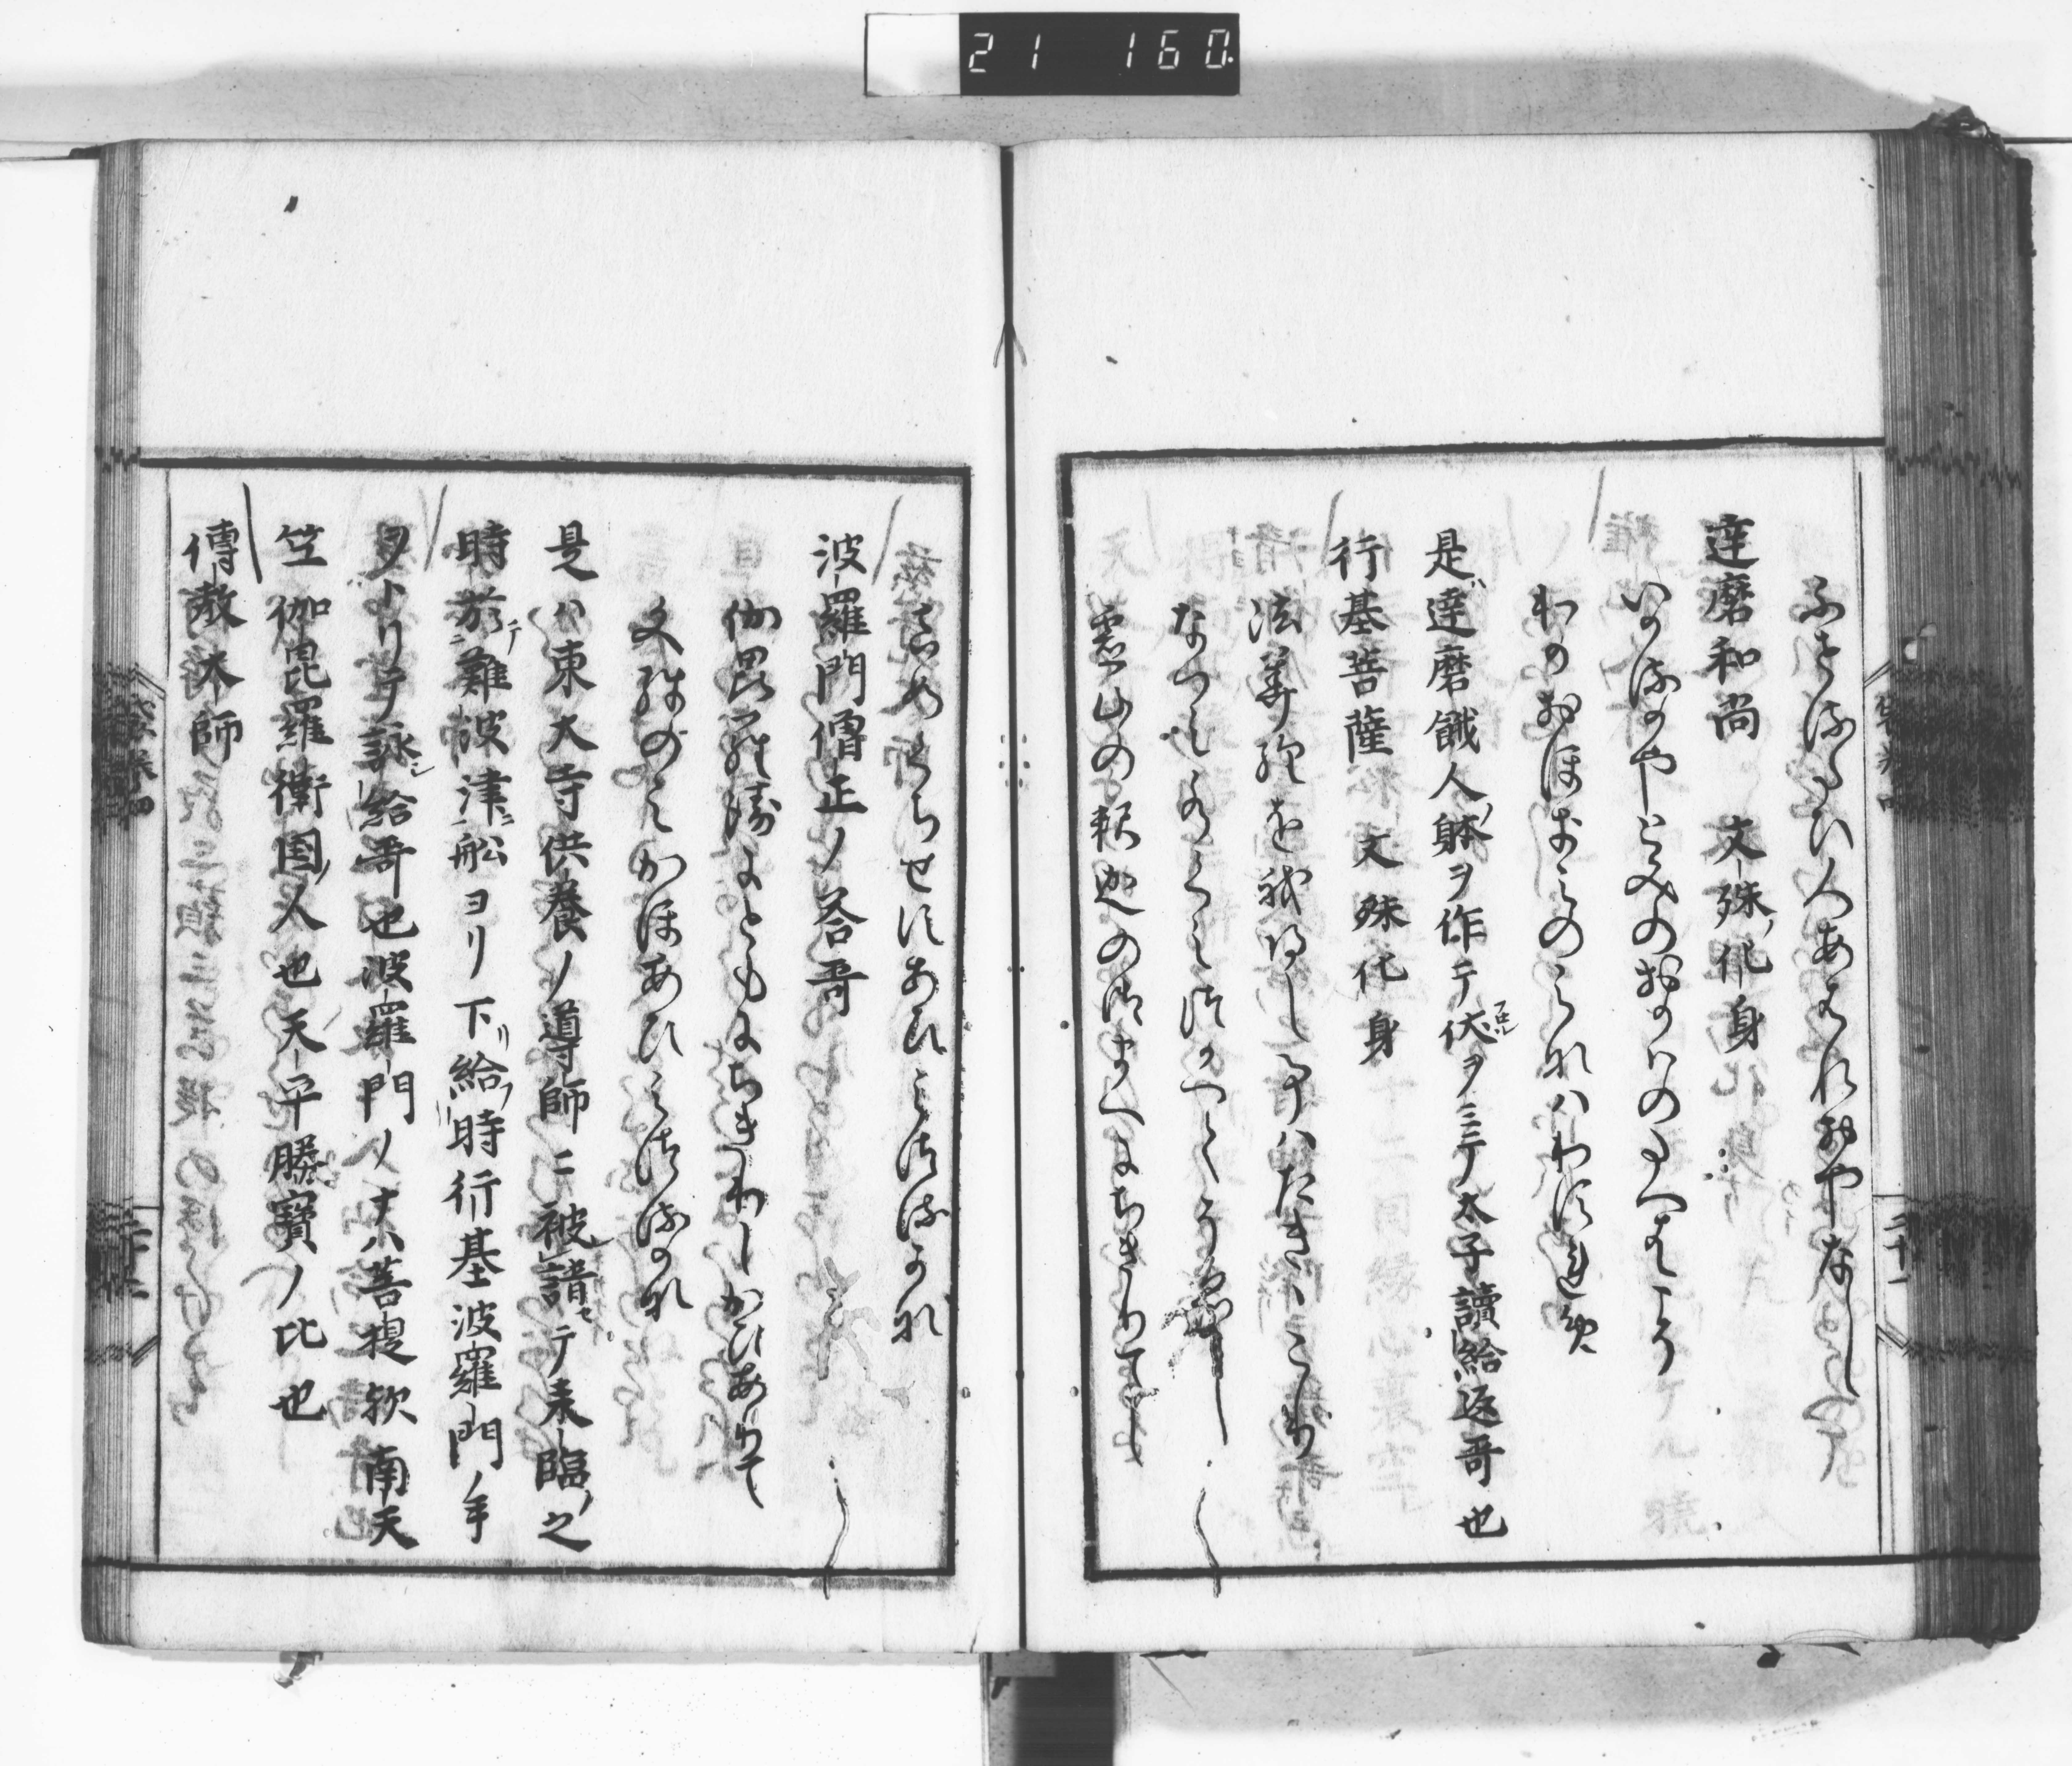 21 160
ふせるたひ人あはれおやなし
達磨和尚 文殊ノ化身
いかるかやとみのおかはのたえはこそ
わかおほきみのみなはわすれめ
是ハ達磨餓人ノ躰ヲ作テ伏ヲミテ太子讀給返哥也
行基菩薩 文殊化身
法華経を我えし事はたきゝこり
なつみみつくみつかへてそえし
霊山の釈迦の御まへにちきりてし
しんによくちせすあひみつるかな
波羅門僧正ノ荅哥
伽毘羅衛にともにちきりしかひありて
文殊のみかほあひみつるかな
是ハ東大寺供養ノ導師ニ被請テ来臨ノ之
時於難波津ニ舩ヨリ下給時行基波羅門ノ手
ヲトリテ詠給哥也波羅門ノ十ハ菩提欤南天
竺伽毘羅衛国ノ人也天平勝寶ノ比也
傳教大師